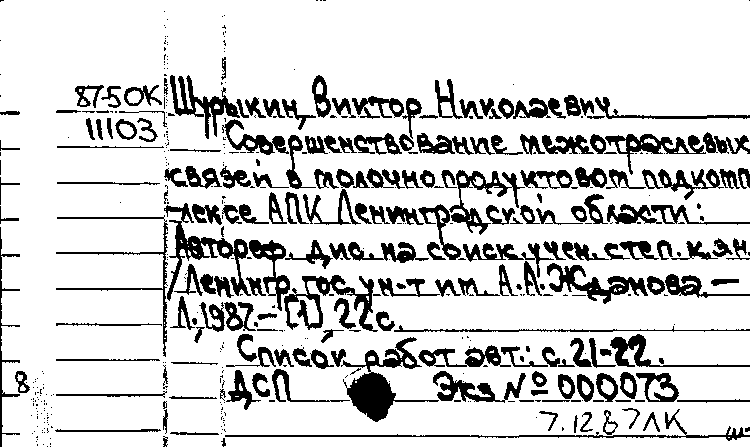 87-5 ОК Шурыкин, Виктор Николаевич.
11103 Совершенствование межотраслевых
связей в молочнопродуктовом подкомп-
лексе АПК Ленинградской области:
Автореф. дис. на соиск. учен. степ. к.эн.
/Ленингр. гос. ун-т им. А.А.Жданова. —
Л., 1987. — [1] 22 с.
Список работ авт.: с. 21-22.
8 ДСП Экз № 000073
7.12.87 ЛК